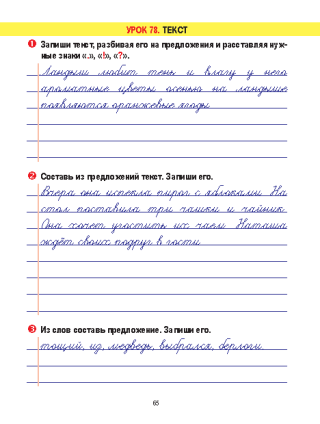 УРОК 78. ТЕКСТ
1 Запиши текст, разбивая его на предложения и расставляя нуж-
ные знаки «.», «!», «?».
Ландыш любит тень и влагу у него
ароматные цветы осенью на ландыше
появляются оранжевые ягоды
2 Составь из предложений текст. Запиши его.
Вчера она испекла пирог с яблоками. На
стол поставила три чашки и чайник.
Она хочет угостить их чаем. Наташа
ждёт своих подруг в гости.
3 Из слов составь предложение. Запиши его.
тощий, из, медведь, выбрался, берлоги.
65